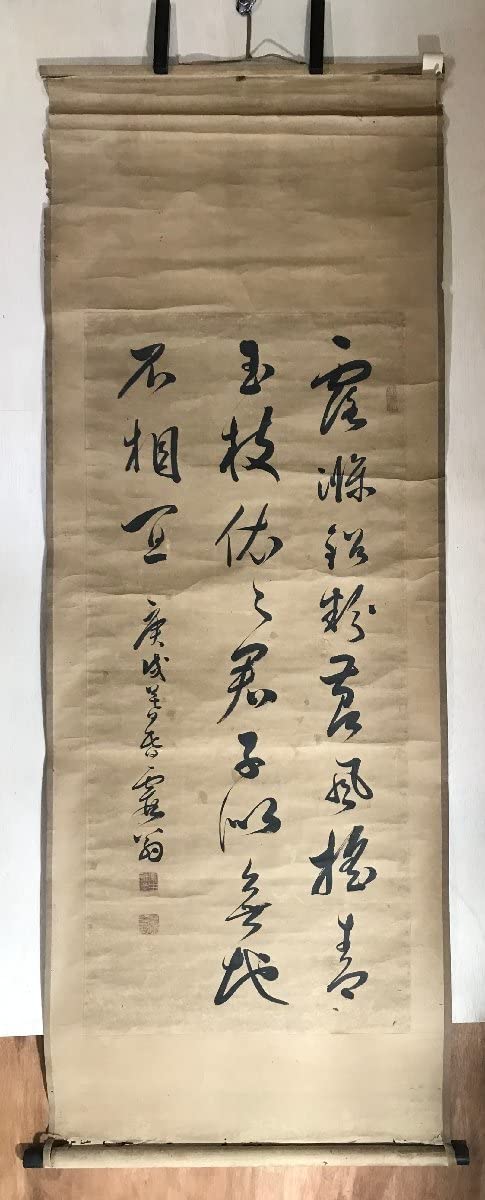 露滌鉛粉節風搖青
玉枝依々君子似無地
不相宜
庚戌春翁